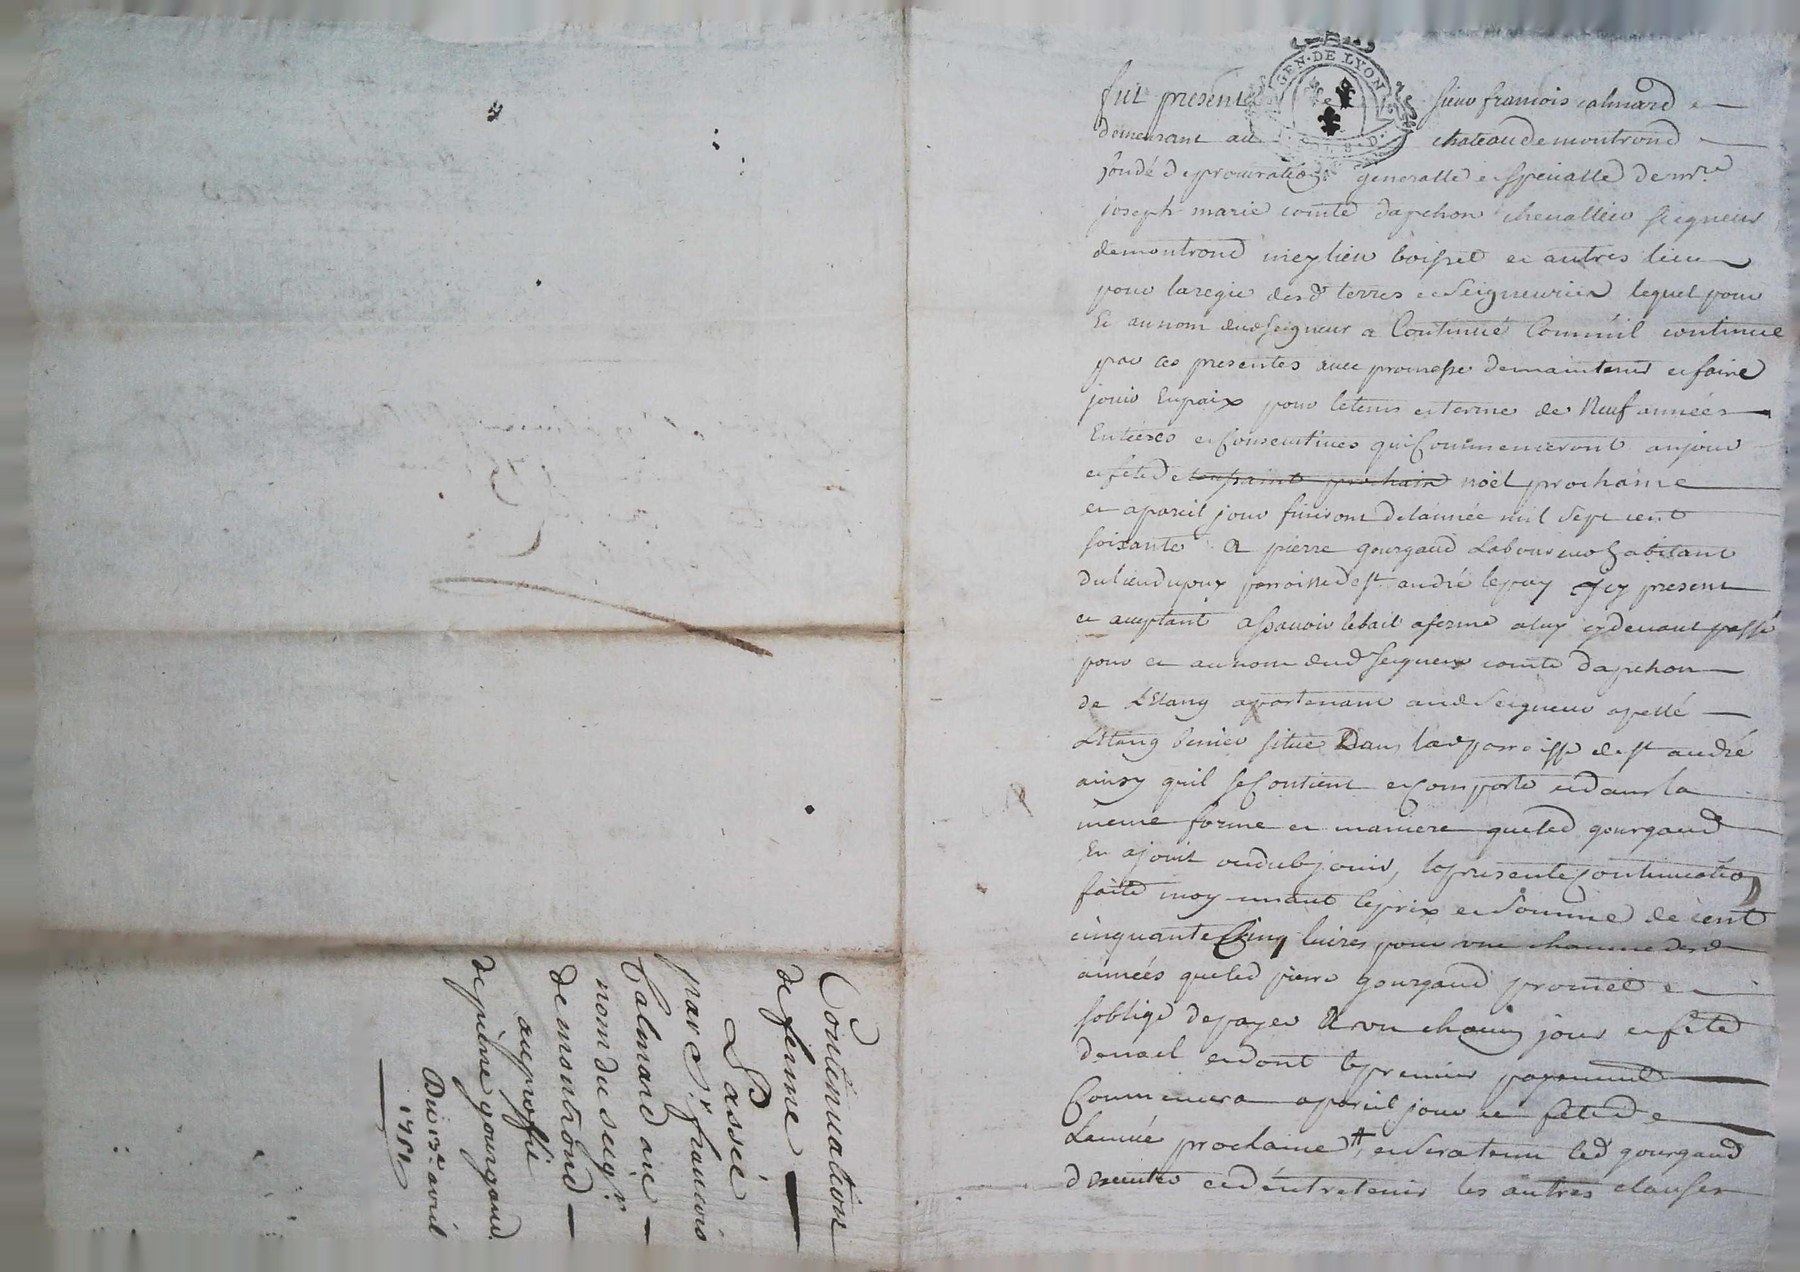 GEN. DE LYON
fut present sieur francois calmard
demeurant au chateau de montrond
fondé de procuration generalle et specialle de mre
joseph marie comte dapchon chevallier seigneur
de montrond meylieu boisset et autres lieux
pour la regie desd terres et seigneuries lequel pour
et au nom dud seigneur a Continué Comm'il continue
par ces presentes avec promesse de maintenir et faire
jouir En paix pour le tems et terme de Neuf années
Entieres et Consecutives qui Commenceront au jour
et fête de toussaint prochain noël prochaine
et apareil jour finiront de lannée mil sept cent
soixante A pierre gourgaud Laboureur habitant
du lieu du puy parroisse de st andré le puy Icy present
et acceptant assavoir le bail aferme a luy cy devant passé
pour et au nom dud seigneur comte dapchon
de L'Etang apartenant aud seigneur apellé
L'Etang situé Dans lad parroisse de st andré
ainsy qu'il se Contient et Comporte et dans la
meme forme et maniere que led gourgaud
En a jouit ou dub jouir, la presente Continuation
faite moyennant le prix et Somme de cent
cinquante Cinq livres pour une chacune desd
années que led pierre gourgaud promet et
soblige de payer A un chacun jour et fête
de noel et dont le premier payement
Commencera apareil jour et fete de
Lannée prochaine #, et sera tenu led gourgaud
dexecuter et d'entretenir les autres clauses
Continuation
de ferme
Passée
par Sr. francois
Calmard au
nom du seigr
de montrond
au proffit
de pierre gourgaud
Du 13e avril
1751